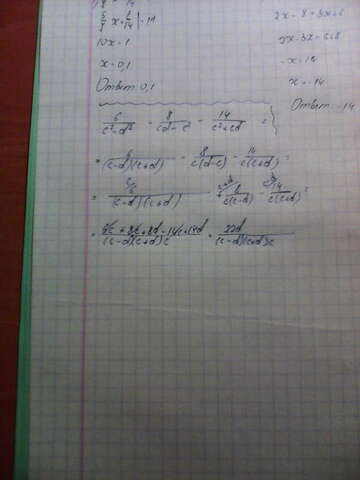 5/7 x + 2/14 | · 14
10x = 1
x = 0,1
Ответ: 0,1
2x - 8 = 3x + 6
2x - 3x = 6 + 8
-x = 14
x = -14
Ответ: -14
6/(c²-d²) - 8/(cd-c²) - 14/(c²+cd) =
= 6/((c-d)(c+d)) - 8/(c(d-c)) - 14/(c(c+d)) =
= 6/((c-d)(c+d)) + 8/(c(c-d)) - 14/(c(c+d)) =
= (6c + 8c + 8d - 14c + 14d)/((c-d)(c+d)c) = 22d/((c-d)(c+d)c)